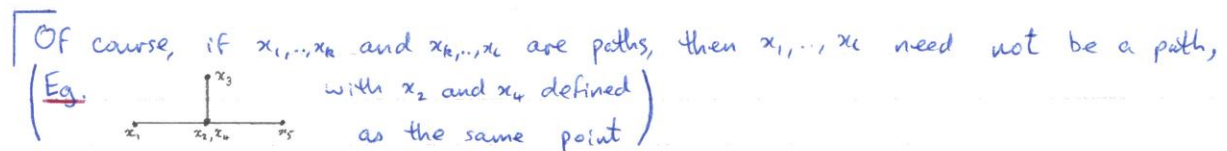 Of course, if x₁,..,xₖ and xₖ,..,xₗ are paths, then x₁,..,xₗ need not be a path,
(Eg. x₃ with x₂ and x₄ defined
x₁ x₂,x₄ x₅ as the same point)